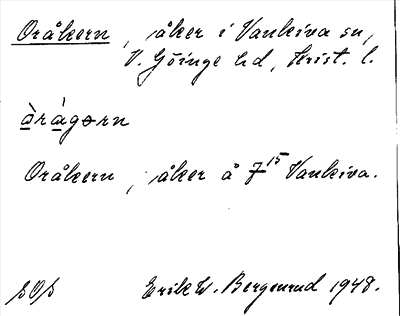 Oråkern, åker i Vankiva sn,
V. Göinge hd, Krist. l.
àrágərn
Oråkern, åker å 7¹⁵ Vankiva.
Erik W. Bergenrud 1948.